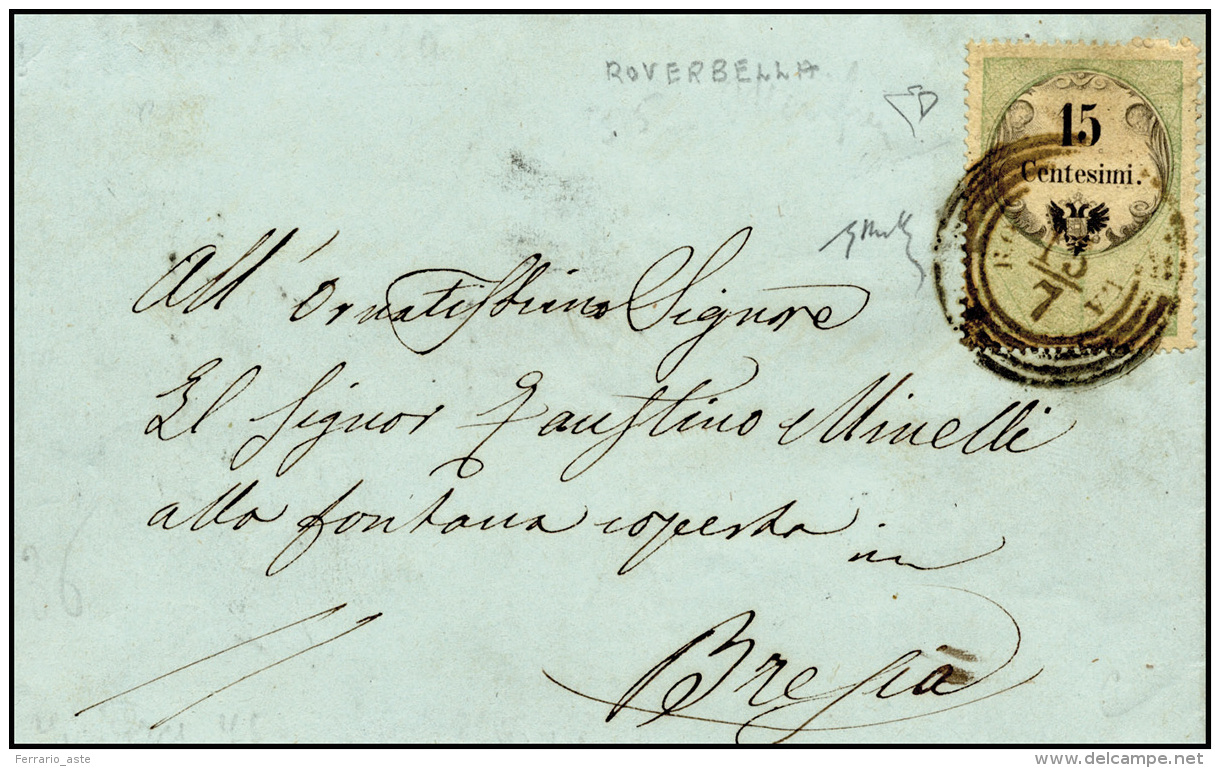 ROVERBELLA
15
Centesimi.
7/5
All' Ornatissimo Signore
El Signor Faustino Minelli
alla fontana coperta in
Brescia
Ferrario_aste
www.delcampe.net